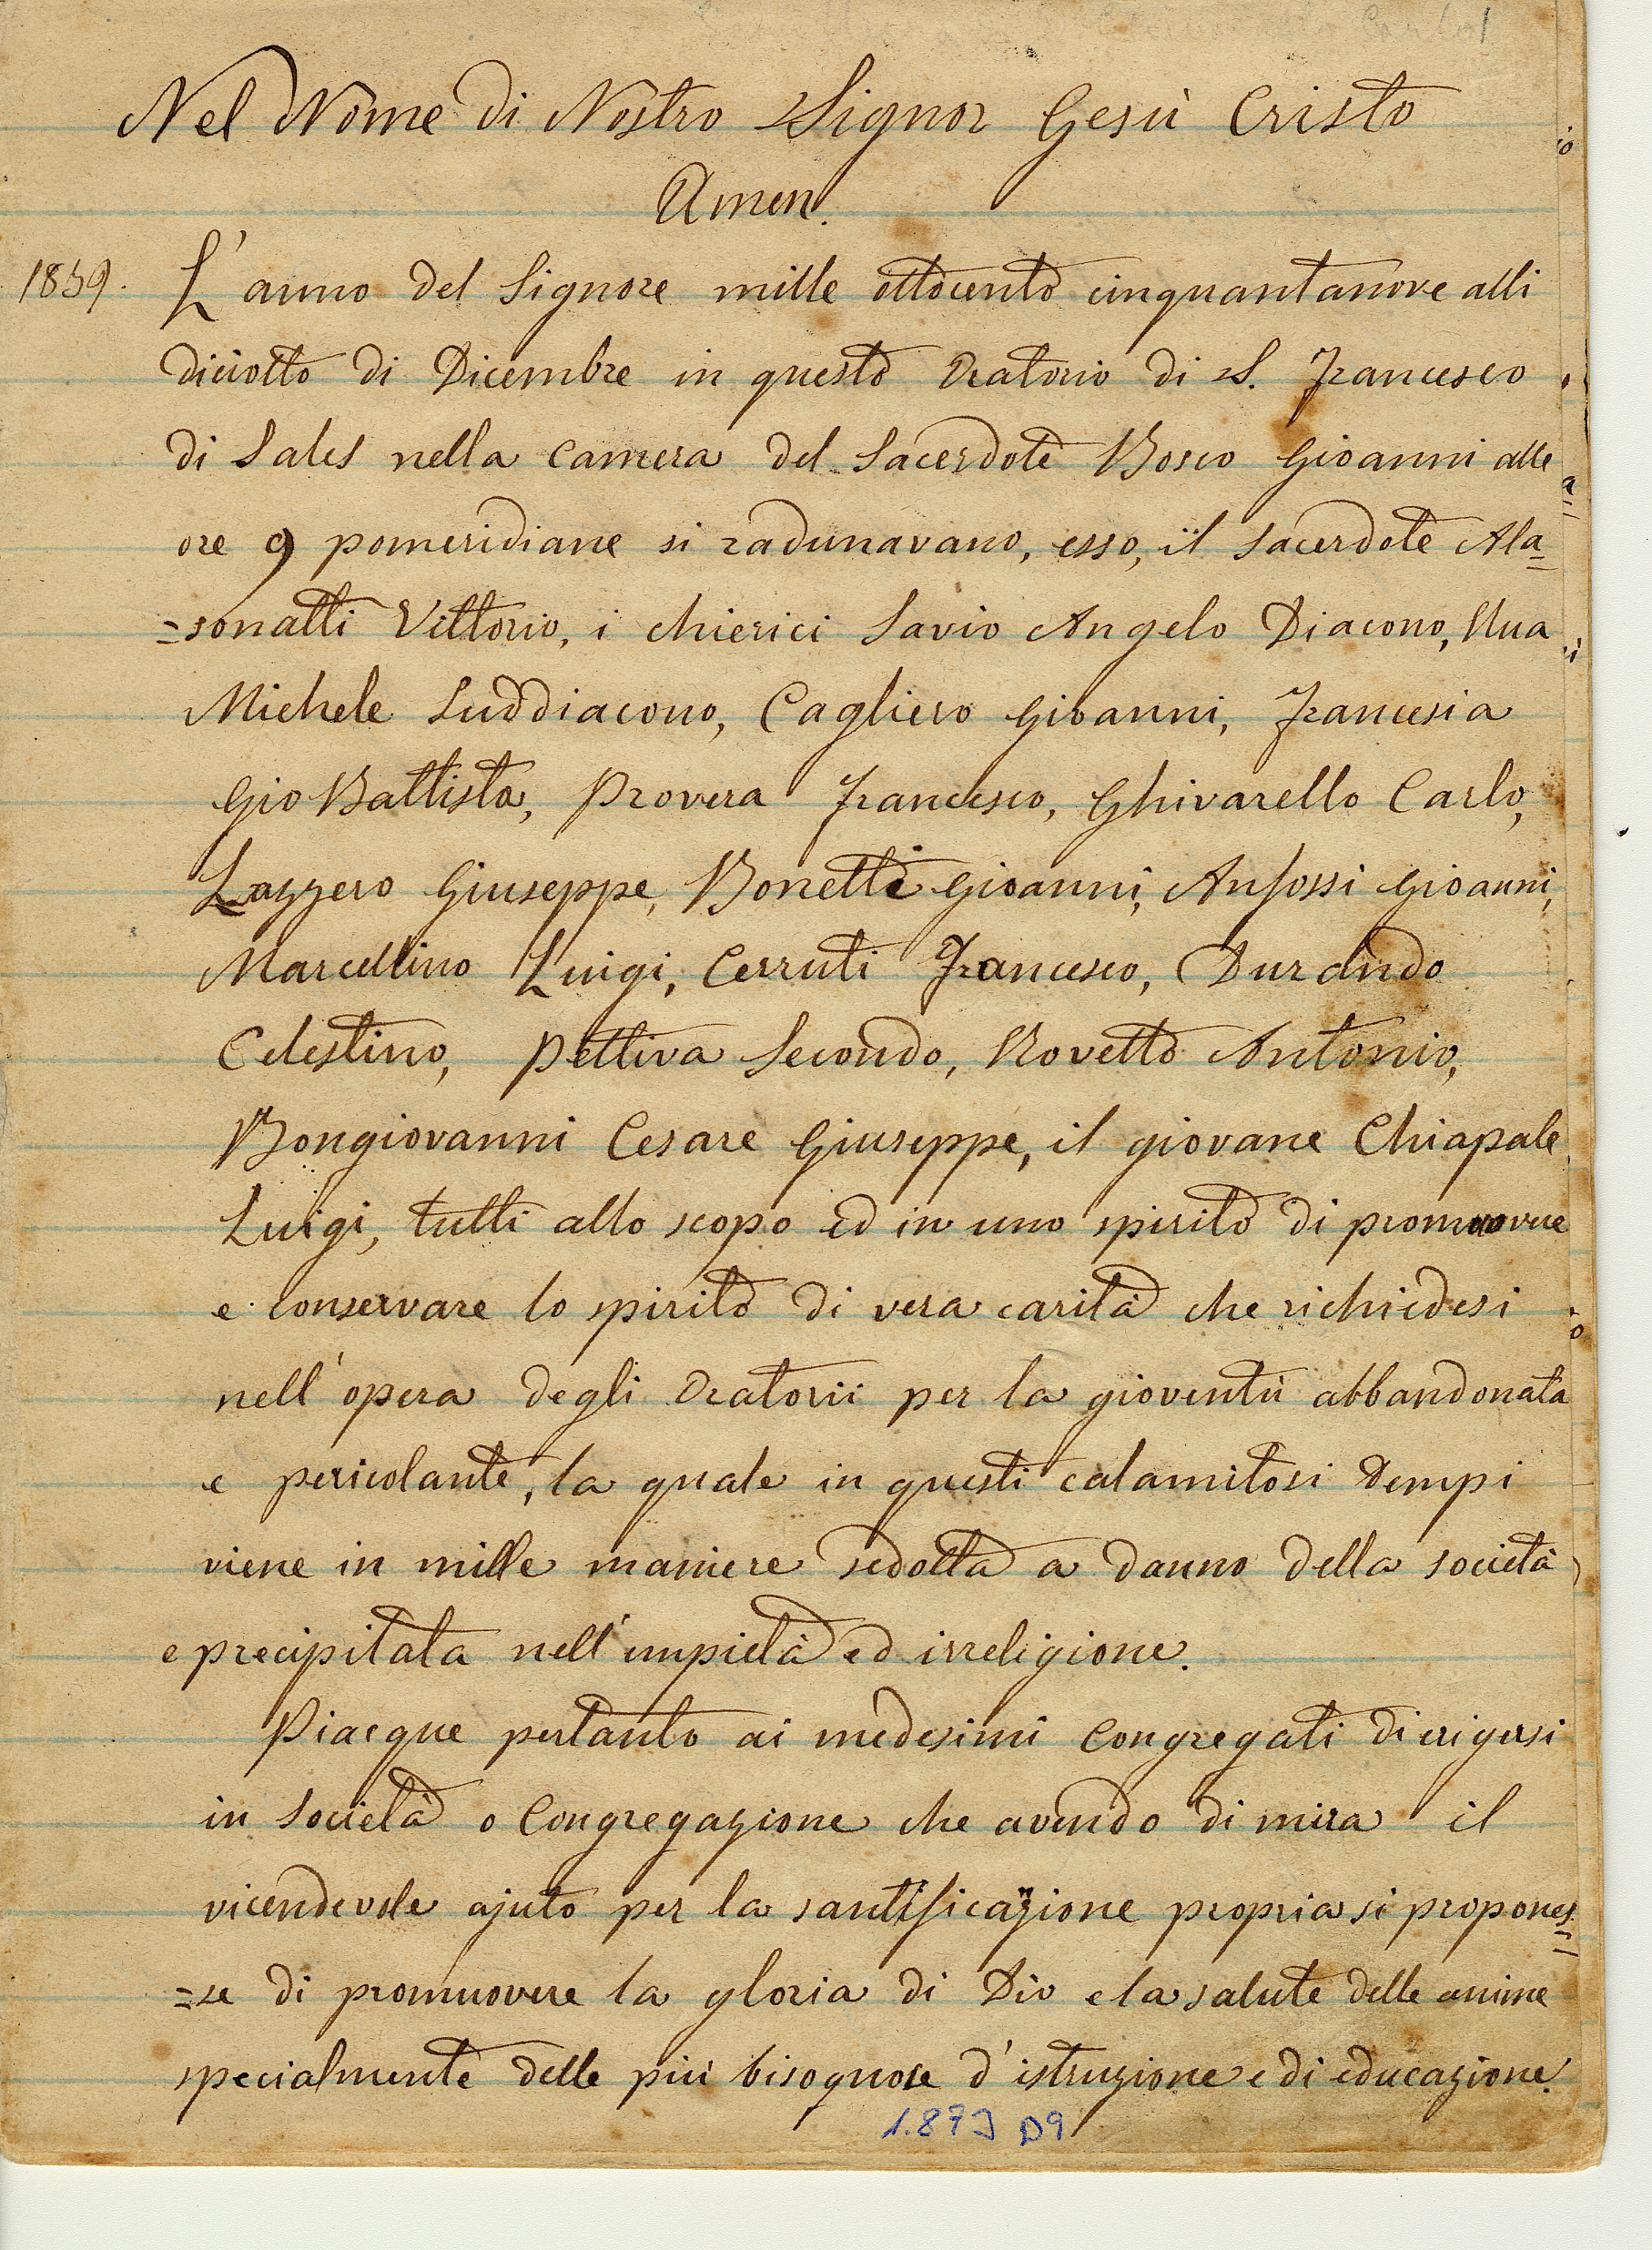 Nel Nome di Nostro Signor Gesù Cristo
Amen.
1859. L'anno del Signore mille ottocento cinquantanove alli
diciotto di Dicembre in questo Oratorio di S. Francesco
di Sales nella camera del Sacerdote Bosco Gioanni alle
ore 9 pomeridiane si radunavano, esso, il Sacerdote Ala=
=sonatti Vittorio, i chierici Savio Angelo Diacono, Rua
Michele Suddiacono, Cagliero Gioanni, Francesia
Gio Battista, Provera Francesco, Ghivarello Carlo,
Lazzero Giuseppe, Bonetti Gioanni, Anfossi Gioanni,
Marcellino Luigi, Cerruti Francesco, Durando
Celestino, Pettiva Secondo, Rovetto Antonio,
Bongiovanni Cesare Giuseppe, il giovane Chiapale
Luigi, tutti allo scopo ed in uno spirito di promuovere
e conservare lo spirito di vera carità che richiedesi
nell'opera degli Oratorii per la gioventù abbandonata
e pericolante, la quale in questi calamitosi tempi
viene in mille maniere sedotta a danno della società
e precipitata nell'empietà ed irreligione.
Piacque pertanto ai medesimi Congregati di erigersi
in Società o Congregazione che avendo di mira il
vicendevole ajuto per la santificazione propria si propones=
=se di promuovere la gloria di Dio e la salute delle anime
specialmente delle più bisognose d'istruzione e di educazione.
1.873 D9